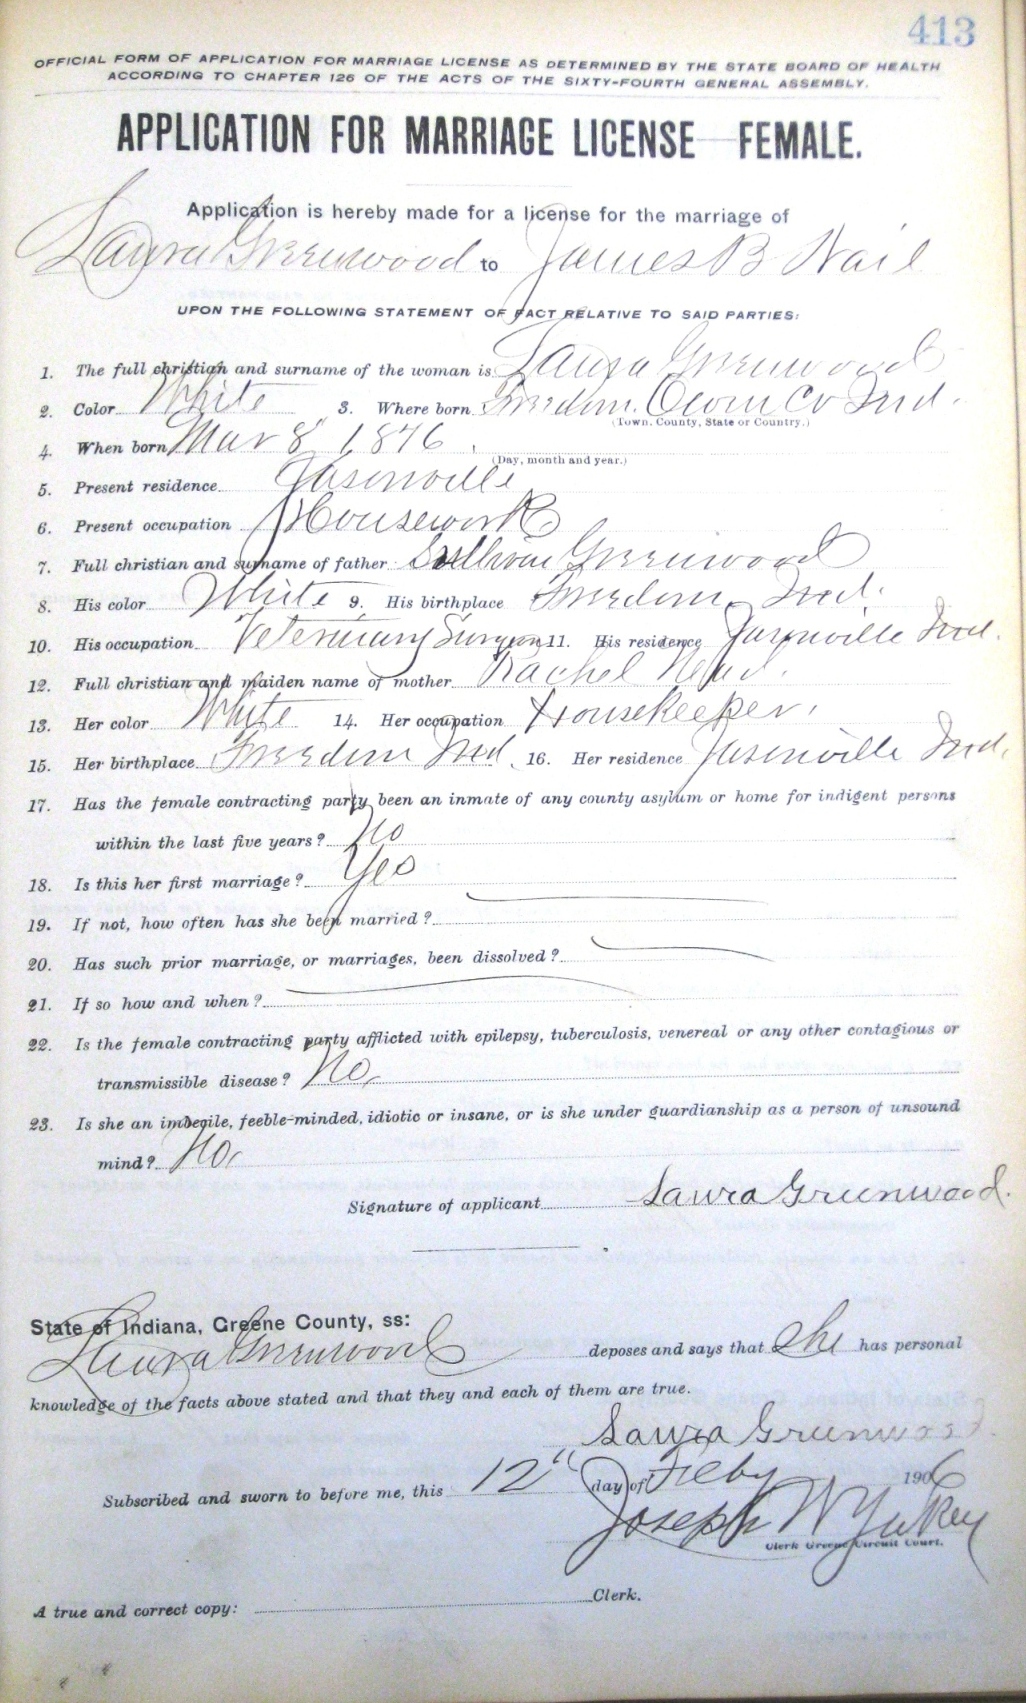 413
OFFICIAL FORM OF APPLICATION FOR MARRIAGE LICENSE AS DETERMINED BY THE STATE BOARD OF HEALTH
ACCORDING TO CHAPTER 126 OF THE ACTS OF THE SIXTY-FOURTH GENERAL ASSEMBLY.
APPLICATION FOR MARRIAGE LICENSE FEMALE.
Application is hereby made for a license for the marriage of
Laura Greenwood to James B Nail
UPON THE FOLLOWING STATEMENT OF FACT RELATIVE TO SAID PARTIES:
1. The full christian and surname of the woman is Laura Greenwood
2. Color White 3. Where born Freedom. Owen Co Ind.
(Town, County, State or Country.)
4. When born Mar 8" 1876.
(Day, month and year.)
5. Present residence Jasonville
6. Present occupation Housework
7. Full christian and surname of father Greenwood
8. His color White 9. His birthplace Freedom, Ind.
10. His occupation Veterinary Surgeon 11. His residence Jasonville Ind.
12. Full christian and maiden name of mother Rachel
13. Her color White 14. Her occupation Housekeeper.
15. Her birthplace Freedom Ind. 16. Her residence Jasonville Ind.
17. Has the female contracting party been an inmate of any county asylum or home for indigent persons
within the last five years? No
18. Is this her first marriage? Yes
19. If not, how often has she been married?
20. Has such prior marriage, or marriages, been dissolved?
21. If so how and when?
22. Is the female contracting party afflicted with epilepsy, tuberculosis, venereal or any other contagious or
transmissible disease? No,
23. Is she an imbecile, feeble-minded, idiotic or insane, or is she under guardianship as a person of unsound
mind? No,
Signature of applicant Laura Greenwood.
State of Indiana, Greene County, ss:
Laura Greenwood deposes and says that She has personal
knowledge of the facts above stated and that they and each of them are true.
Laura Greenwood.
Subscribed and sworn to before me, this 12" day of Feby 1906
Joseph W Yakey
Clerk Greene Circuit Court.
A true and correct copy: Clerk.